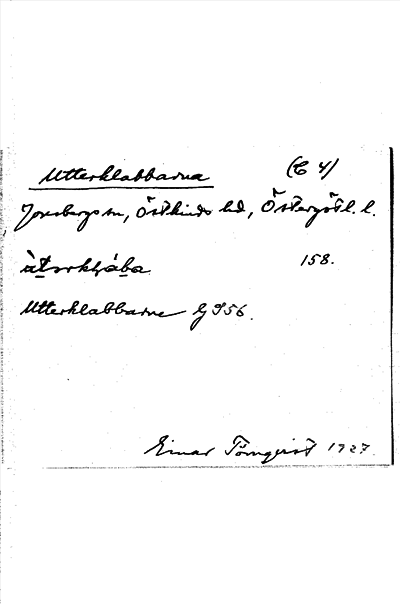 Utterklabbarna (C 4)
Jonsbergs sn, Östkinds hd, Östergötl. l.
158.
Utterklabbarne GS56.
Einar Törnqvist 1927.